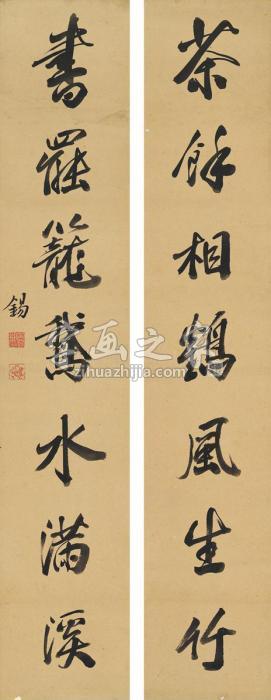 茶餘相鶴風生竹
書罷籠鵞水滿溪
錫
画之美
zihuazhijia.com